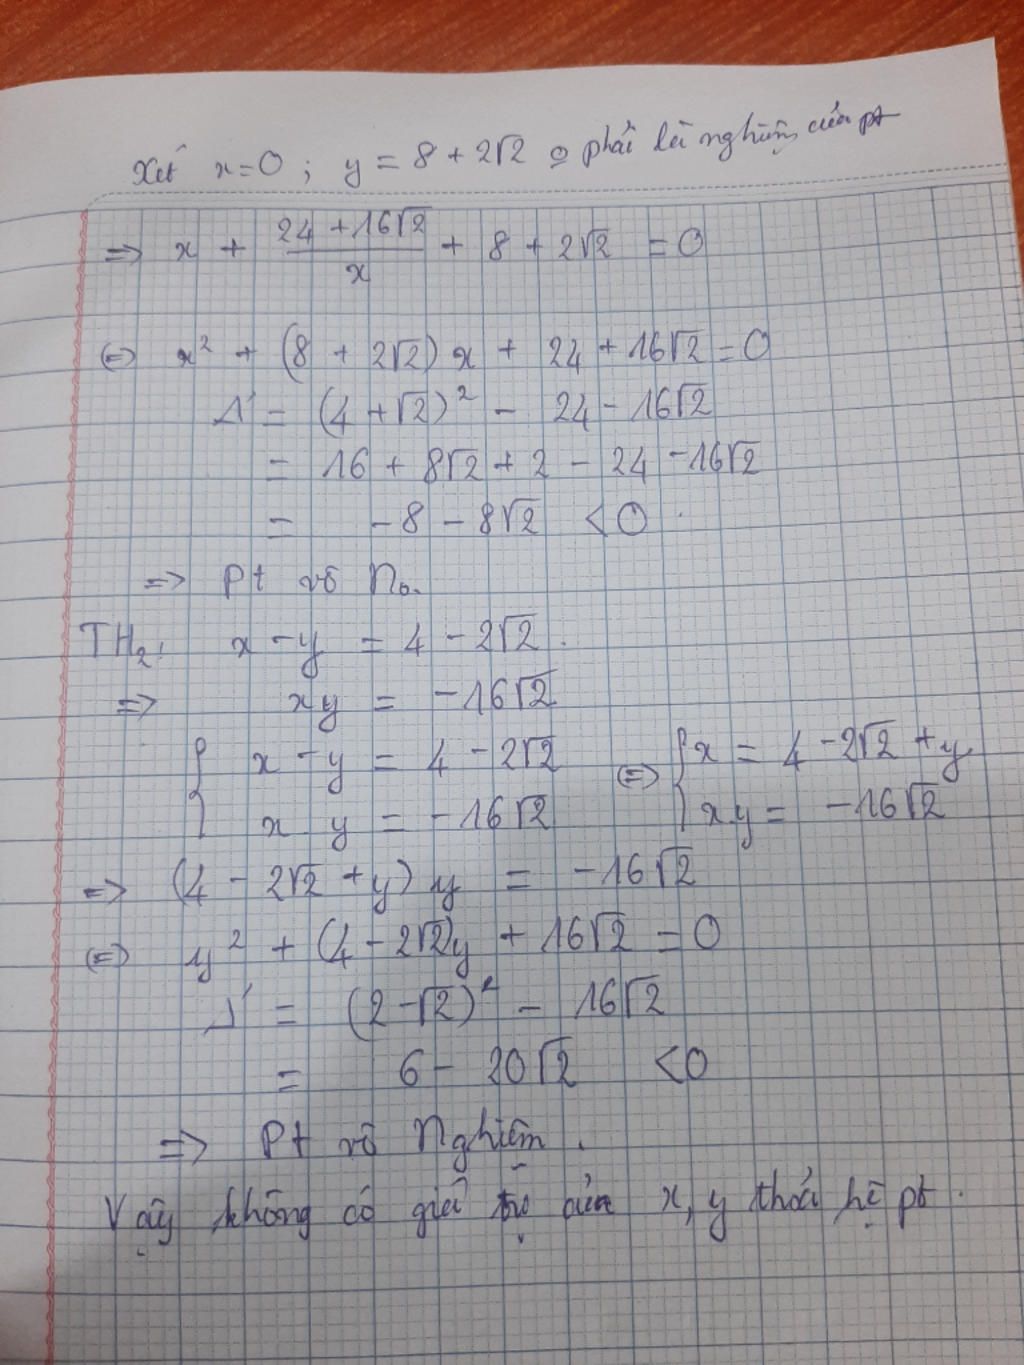 Xét x=0 ; y = 8 + 2√2 o phải là nghiệm của pt
=> x + (24 + 16√2)/x + 8 + 2√2 = 0
(=) x² + (8 + 2√2) x + 24 + 16√2 = 0
Δ' = (4 + √2)² - 24 - 16√2
= 16 + 8√2 + 2 - 24 - 16√2
= -8 - 8√2 < 0 .
=> Pt vô No.
TH₂: x - y = 4 - 2√2 .
=> xy = -16√2
{ x - y = 4 - 2√2 (=) { x = 4 - 2√2 + y
{ x y = -16√2 { x.y = -16√2
=> (4 - 2√2 + y) y = -16√2
(=) y² + (4 - 2√2)y + 16√2 = 0
Δ' = (2 - √2)² - 16√2
= 6 - 20√2 < 0
=> Pt vô Nghiêm .
Vậy không có giá trị của x, y thỏa hệ pt .